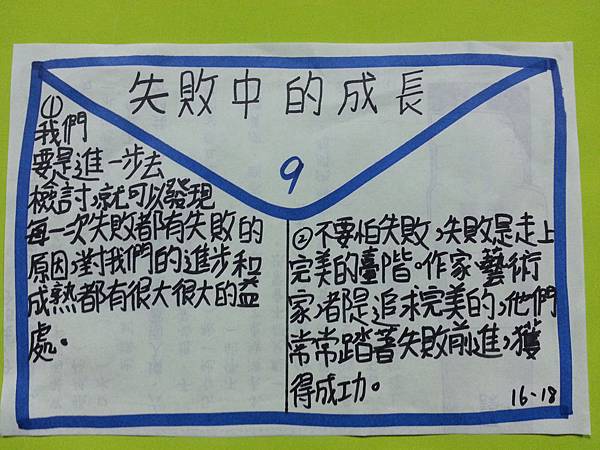 失敗中的成長
9
(1)
我們
要是進一步去
檢討,就可以發現
每一次失敗都有失敗的
原因,對我們的進步和
成熟都有很大很大的益
處。
②不要怕失敗,失敗是走上
完美的臺階。作家、藝術
家,都是追求完美的,他們
常常踏著失敗前進,獲
得成功。
16-18